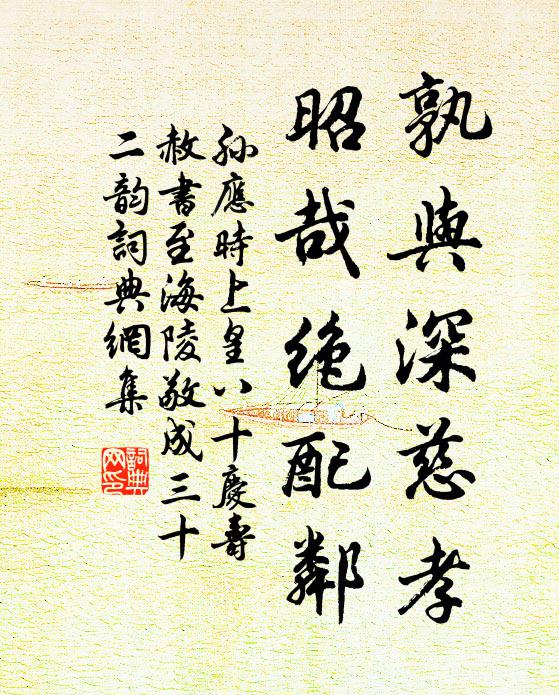 孰與深慈孝
昭哉絶配鄰
孫應時上皇八十慶壽
赦書至海陵敬成三十
二韵詞典網集
詞典
网印